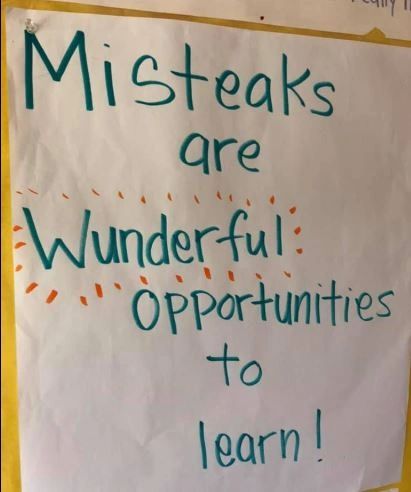 Misteaks
are
Wunderful
opportunities
to
learn!